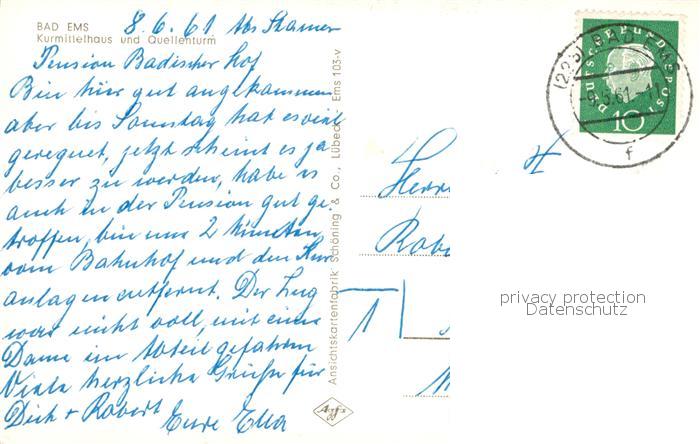 BAD EMS
Kurmittelhaus und Quellenturm
8. 6. 61
Pension Badischer Hof
Bin hier gut angekommen
aber bis Sonntag hat es viel
geregnet, jetzt scheint es ja
besser zu werden, habe es
auch in der Pension gut ge-
troffen, bin nur 2 Minuten
vom Bahnhof und den Kur
anlagen entfernt. Der Zug
war nicht voll, mit einer
Dame im Abteil gefahren
Viele herzliche Grüße für
Dich + Robert Eure Ella
Ansichtskartenfabrik Schöning & Co., Lübeck Ems 103-v
Agfa
DEUTSCHE BUNDESPOST
10
BAD EMS
61
f
Herrn
Robe
privacy protection
Datenschutz